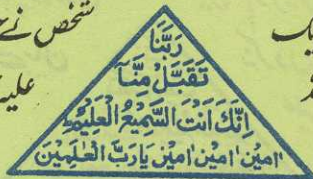 شخص نے
یک
علیہ
رَبَّنَا
تَقَبَّلْ مِنَّا
اِنَّكَ اَنْتَ السَّمِيْعُ الْعَلِيْمُ
اٰمِيْن اٰمِيْن اٰمِيْن يَارَبَّ الْعٰلَمِيْنَ